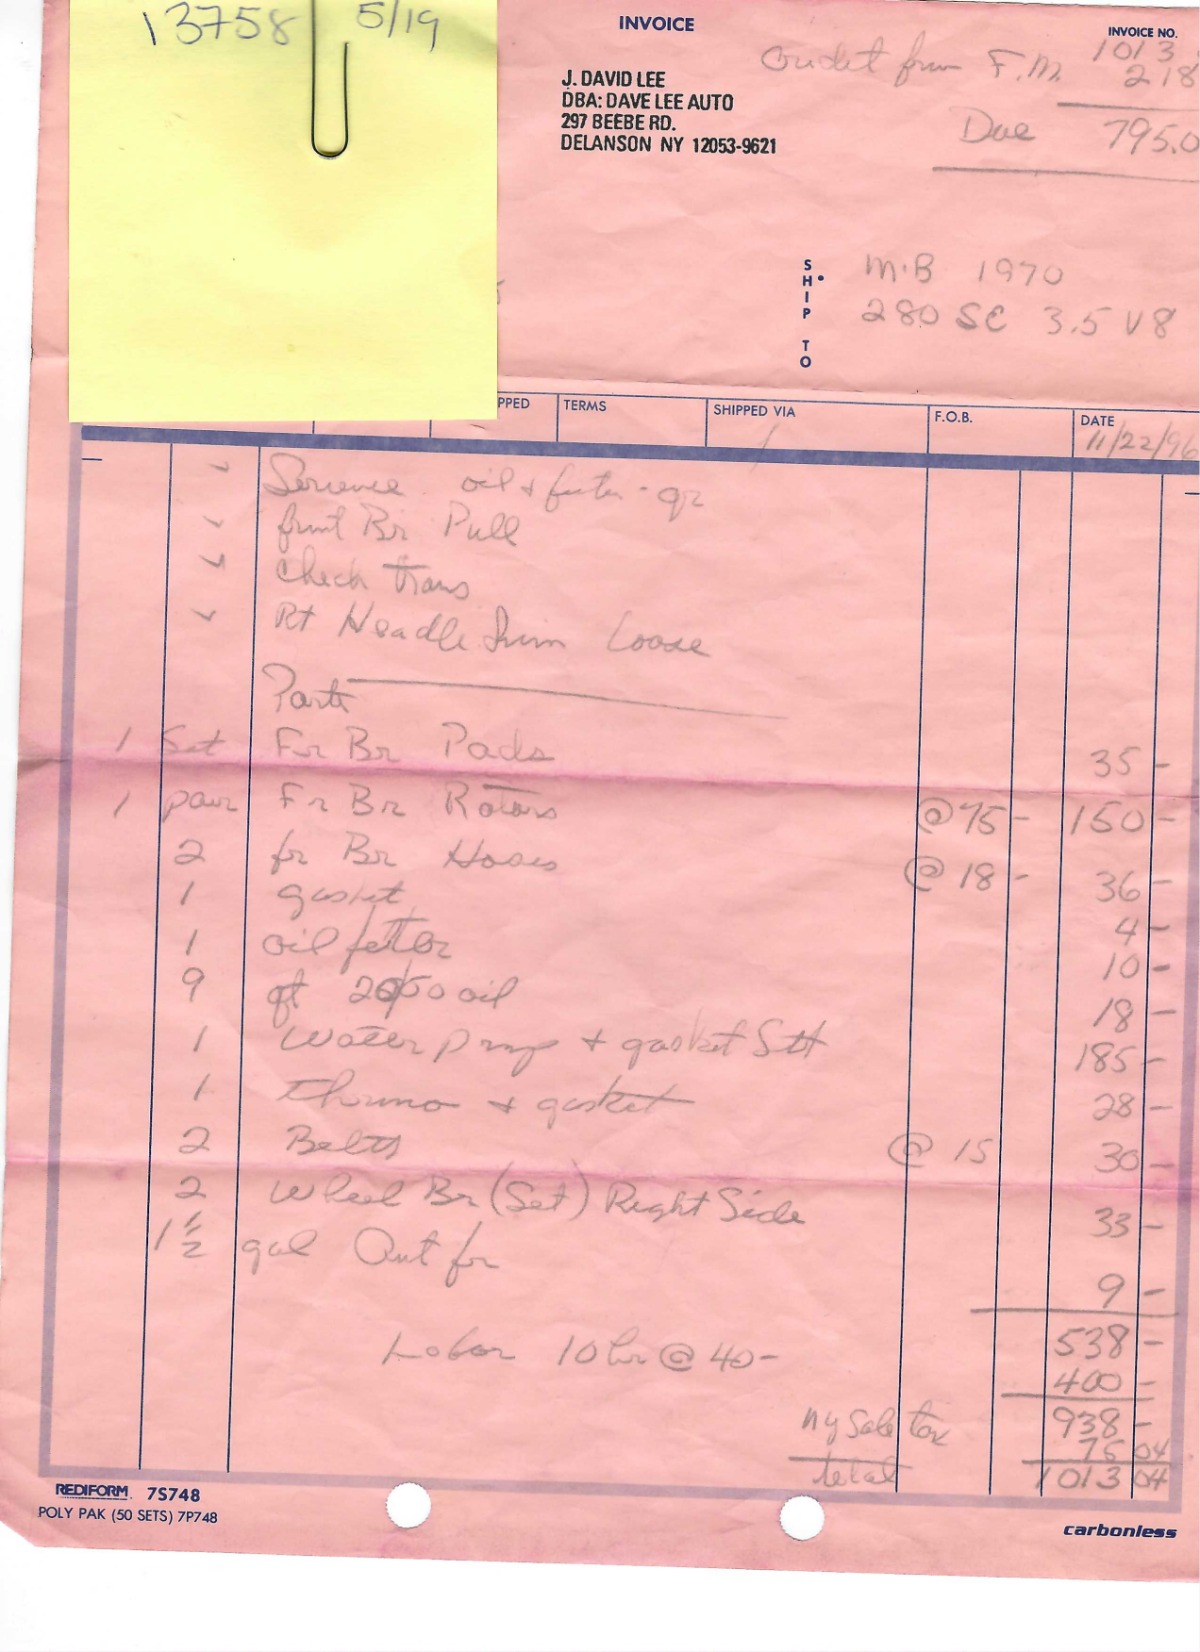 13758 5/19
INVOICE
INVOICE NO.
J. DAVID LEE
DBA: DAVE LEE AUTO
297 BEEBE RD.
DELANSON NY 12053-9621
Credit from F.M. 1013
218
Due 795.0
SHIP TO
M.B 1970
280 SE 3.5 V8
PPED TERMS SHIPPED VIA F.O.B. DATE
11/22/96
Service oil + filter -
front Br Pull
Check trans
Rt Headle trim Loose
Parts
1 Set Fr Br Pads 35 -
1 pair Fr Br Rotors @ 75 - 150 -
2 fr Br Hoses @ 18 - 36 -
1 gasket 4 -
1 oil filter 10 -
9 qt 20/50 oil 18 -
1 Water pump + gasket Set 185 -
1 thermo + gasket 28 -
2 Belts @ 15 30 -
2 Wheel Br (Set) Right Side 33 -
1 1/2 gal Ant fr 9 -
538 -
Labor 10 hr @ 40 - 400 -
938 -
NY Sale tax 75 04
total 1013 04
REDIFORM 7S748
POLY PAK (50 SETS) 7P748
carbonless